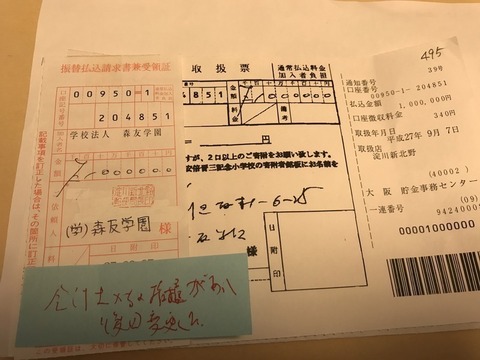 振替払込請求書兼受領証
口座記号番号
00950 1
204851
加入者名
学校法人 森友学園
金額
ご依頼人
(学)森友学園
様
日附印
記載事項を訂正した場合は、その箇所に訂正
取扱票
通常払込料金
加入者負担
4851
金額
料金
備考
円
ですが、2口以上のご寄附をお願い致します。
安倍晋三記念小学校の寄附者銘板にお名前を
様
日附印
495
39号
通知番号
口座番号
00950-1-204851
払込金額 1,000,000円
口座徴収料金 340円
取扱年月日
平成27年 9月 7日
取扱店
淀川新北野
(40002)
大阪 貯金事務センター
(09)
一連番号 94240009
00001000000